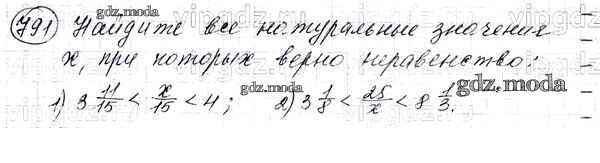 791 Найдите все натуральные значения
x, при которых верно неравенство:
1) 3 11/15 < x/15 < 4; 2) 3 1/8 < 25/x < 8 1/3.
gdz.moda
gdz.moda
gdz.moda